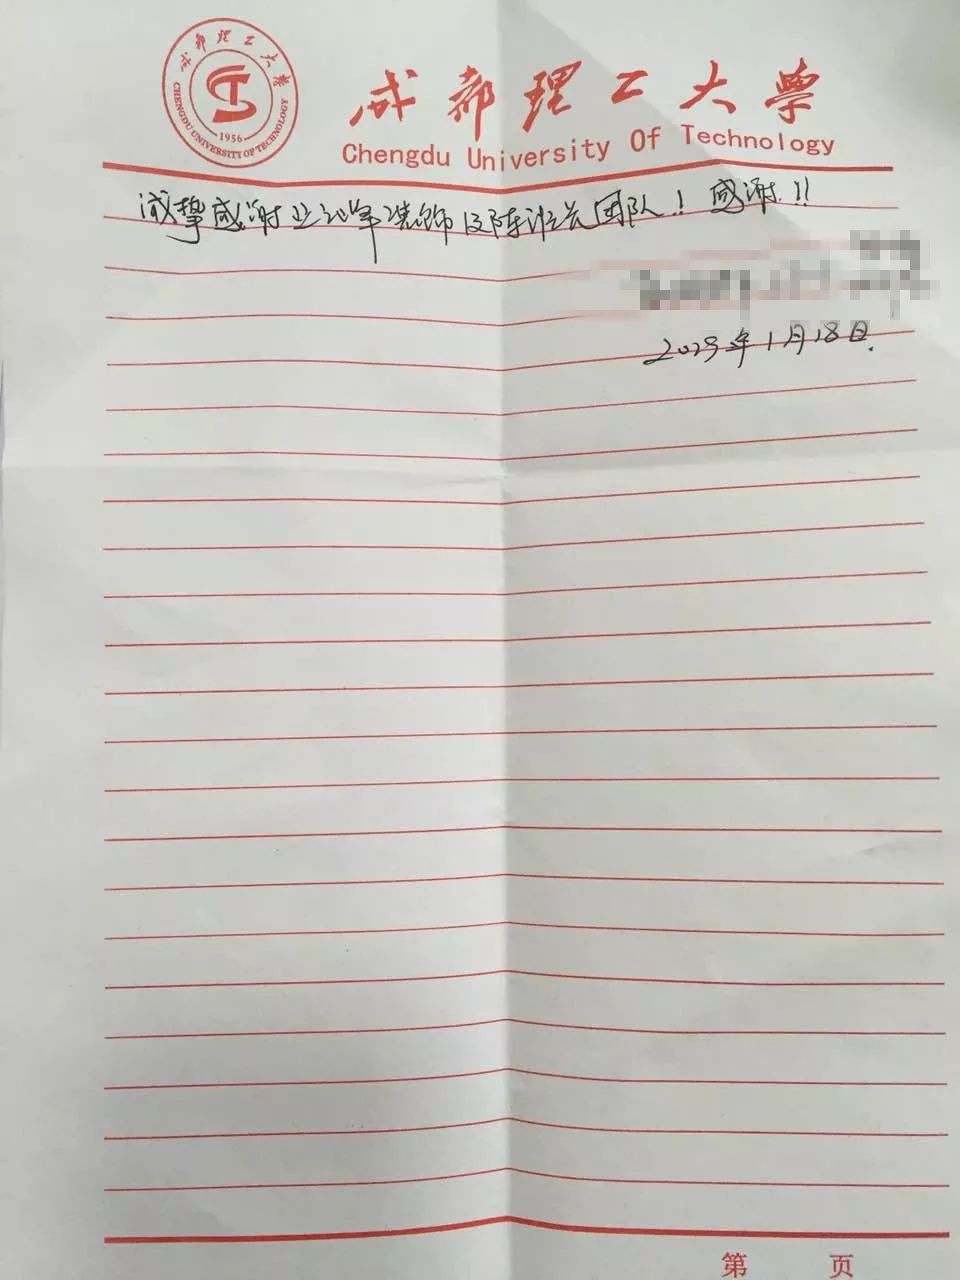 成都理工大学
CHENGDU UNIVERSITY OF TECHNOLOGY
1956
成都理工大學
Chengdu University Of Technology
诚挚感谢业之峰装饰及陈 团队！感谢！！
2023年1月18日.
第 页